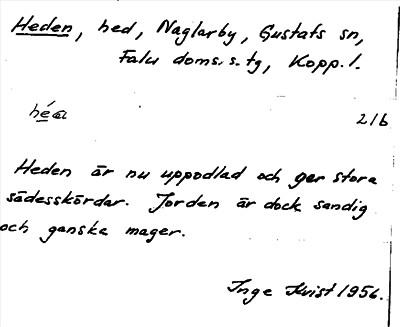 Heden, hed, Naglarby, Gustafs sn,
Falu doms.s.tg, Kopp.l.
216
Heden är nu uppodlad och ger stora
sädesskördar. Jorden är dock sandig
och ganska mager.
Inge Kvist 1956.